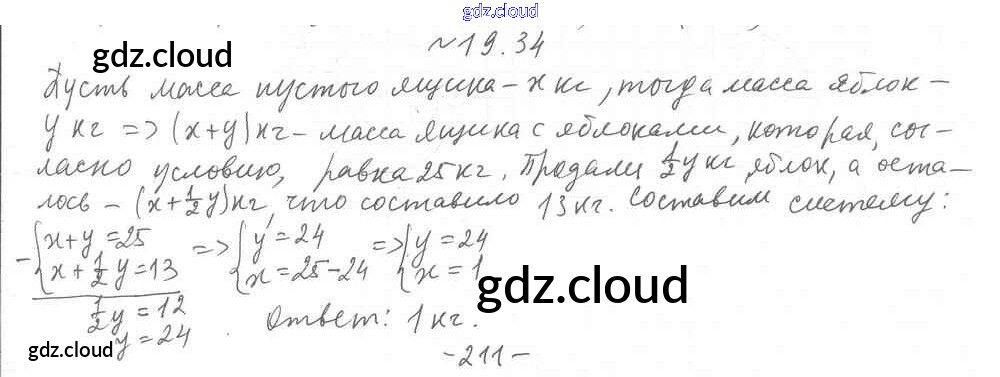 gdz.cloud
№19.34
gdz.cloud
Пусть масса пустого ящика - x кг, тогда масса яблок -
y кг => (x+y) кг - масса ящика с яблоками, которая, сог-
ласно условию, равна 25 кг. Продали 1/2 y кг яблок, а оста-
лось - (x + 1/2 y) кг, что составило 13 кг. Составим систему:
- { x+y=25 => { y=24 => { y=24
x + 1/2 y = 13 x=25-24 x=1
1/2 y = 12
y = 24
Ответ: 1 кг.
gdz.cloud
gdz.cloud
-211-